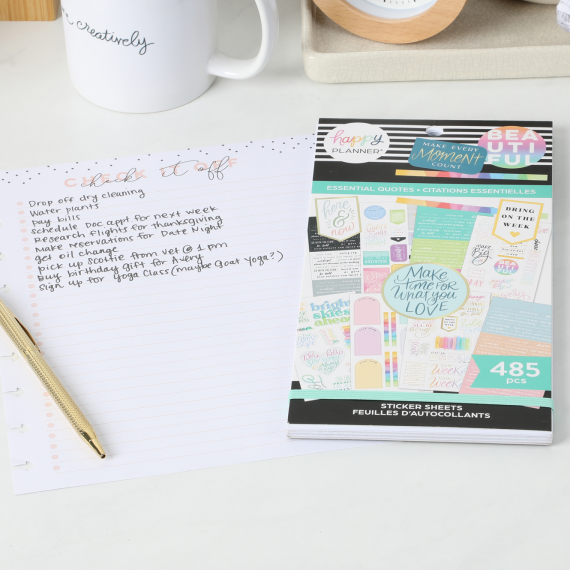 creatively
CHECK IT OFF
check it off
Drop off dry cleaning
Water plants
pay bills
schedule Doc appt for next week
Research flights for thanksgiving
Make reservations for Date Night
get oil change
pick up Scottie from vet @ 1 pm
buy birthday gift for Avery
Sign up for Yoga Class (maybe Goat Yoga?)
happy
PLANNER®
MAKE EVERY
Moment
COUNT
BEA
UTI
FUL
ESSENTIAL QUOTES • CITATIONS ESSENTIELLES
here
&
now
BRING
ON THE
WEEK
Make
time FOR
What you
LOVE
bright
skies
ahead
485
pcs
STICKER SHEETS
FEUILLES D'AUTOCOLLANTS